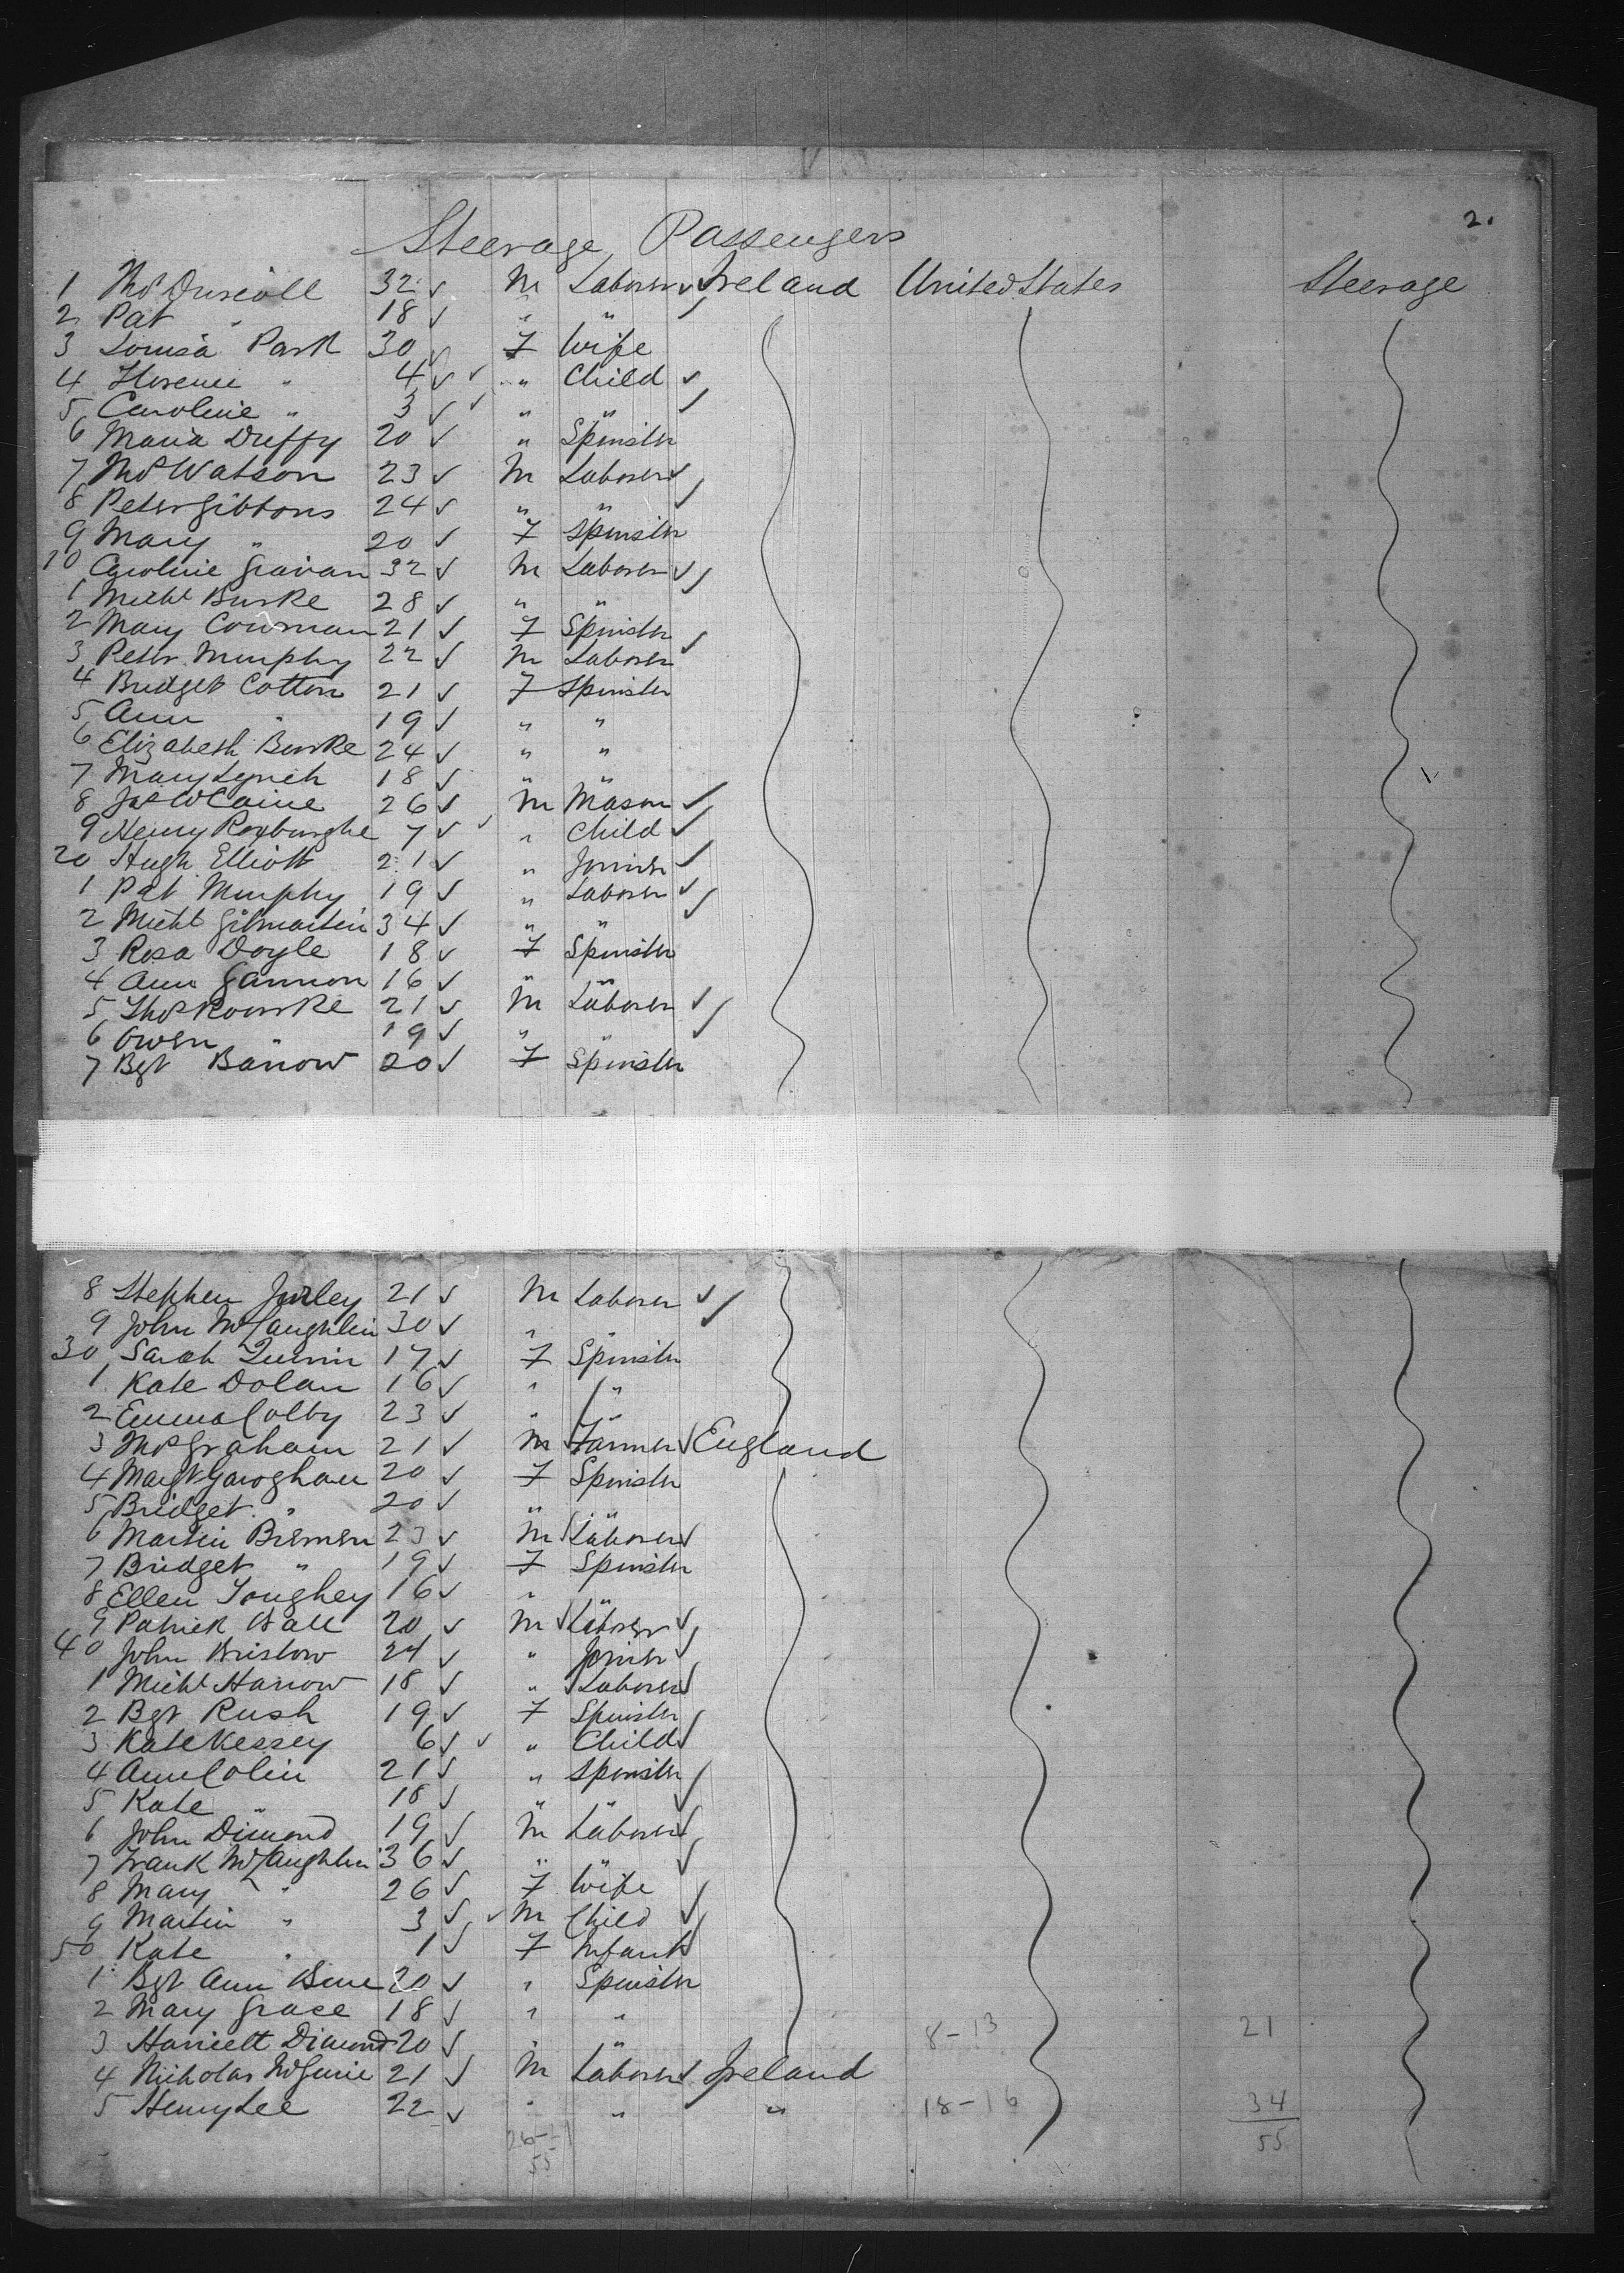 2.
Steerage Passengers
1 Thos Driscoll 32 M Laborer Ireland United States Steerage
2 Pat " 18 " "
3 Louisa Park 30 F Wife
4 Florence " 4 " Child
5 Caroline " 3 " "
6 Maria Duffy 20 " Spinster
7 Thos Watson 23 M Laborer
8 Peter Gibbons 24 " "
9 Mary " 20 F Spinster
10 Caroline Gravan 32 M Laborer
1 Michl Burke 28 " "
2 Mary Cowman 21 F Spinster
3 Peter Murphy 22 M Laborer
4 Bridget Cotton 21 F Spinster
5 Ann " 19 " "
6 Elizabeth Burke 24 " "
7 Mary Lynch 18 " "
8 Jas W Caine 26 M Mason
9 Henry Roxburghe 7 " Child
20 Hugh Elliott 21 " Joiner
1 Pat Murphy 19 " Laborer
2 Michl Gilmartin 34 " "
3 Rosa Doyle 18 F Spinster
4 Ann Gannon 16 " "
5 Thos Rourke 21 M Laborer
6 Owen " 19 " "
7 Bgt Barrow 20 F Spinster
8 Stephen Jurley 21 M Laborer
9 John McLaughlin 30 " "
30 Sarah Quinn 17 F Spinster
1 Kate Dolan 16 " "
2 Emma Colby 23 " "
3 Thos Graham 21 M Farmer England
4 Margt Garoghan 20 F Spinster
5 Bridget " 20 " "
6 Martin Bremen 23 M Laborer
7 Bridget " 19 F Spinster
8 Ellen Toughey 16 "
9 Patrick Hall 20 M Laborer
40 John Bristow 24 " Joiner
1 Michl Harrow 18 " Laborer
2 Bgt Rush 19 F Spinster
3 Kate Kessey 6 " Child
4 Ann Colin 21 " Spinster
5 Kate " 18 " "
6 John Dimond 19 M Laborer
7 Frank McLaughlin 36 " "
8 Mary " 26 F Wife
9 Martin " 3 M Child
50 Kate " 1 F Infant
1 Bgt Ann 20 " Spinster
2 Mary Grace 18 " "
3 Harriett Dimond 20 " " 8-13 21
4 Nicholas 21 M Laborer Ireland
5 Henry Lee 22 " " " 18-16 34
55 55